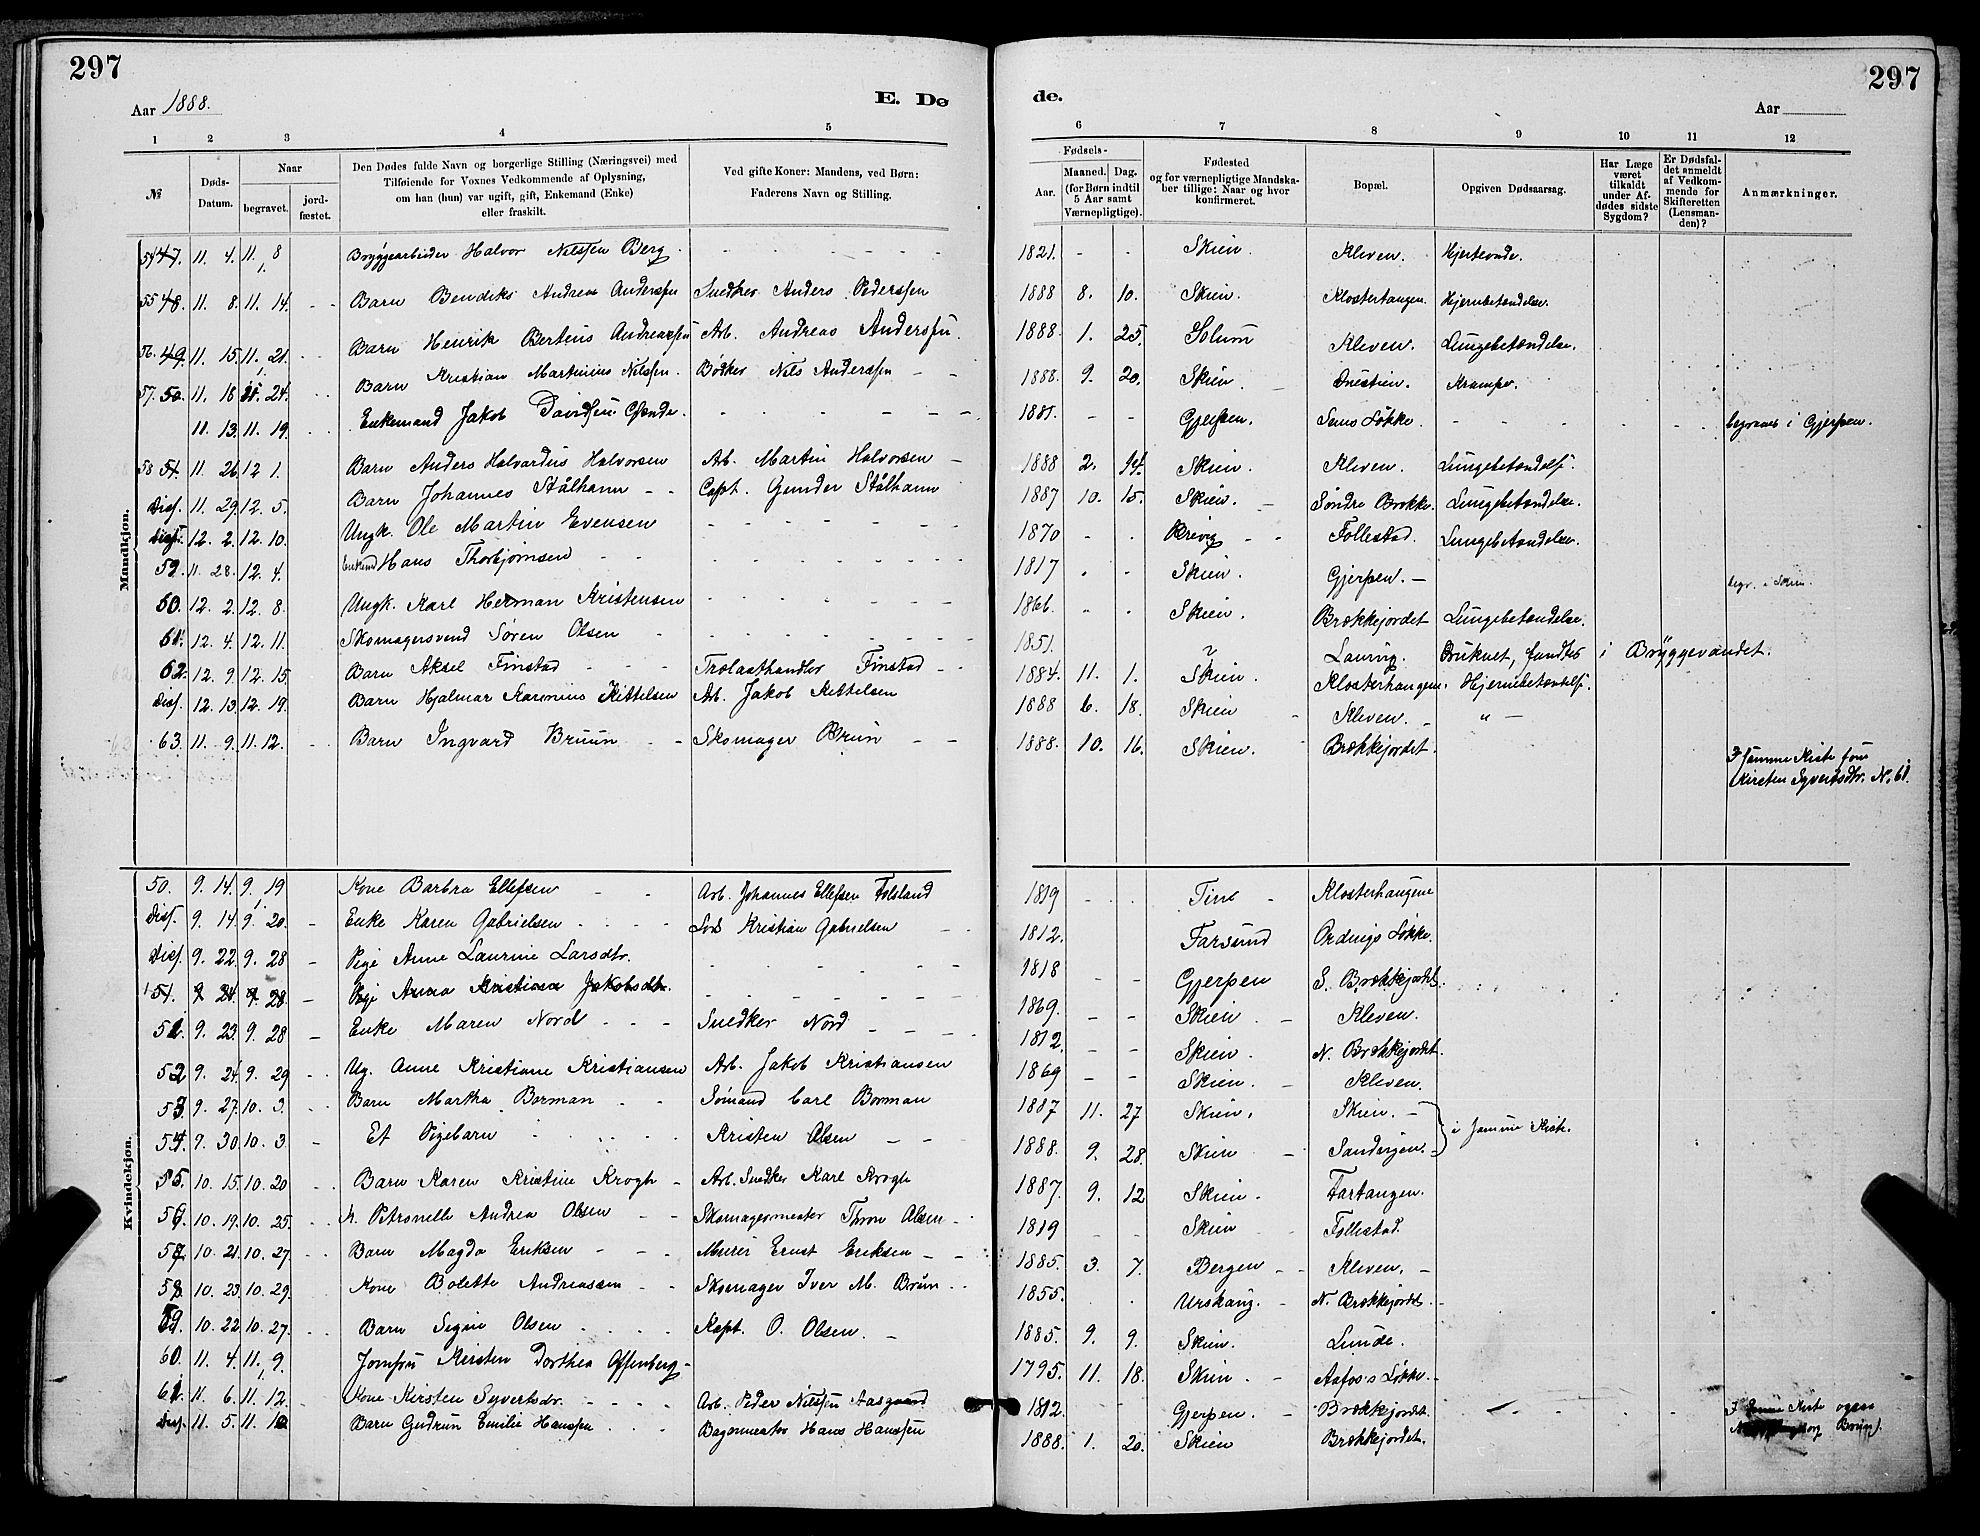 297
297
Aar 1888.
E. Dø
de.
Aar
1 2 3 4 5 6 7 8 9 10 11 12
№ Døds-Datum. Naar begravet. jord-fæstet. Den Dødes fulde Navn og borgerlige Stilling (Næringsvei) med Tilføiende for Voxnes Vedkommende af Oplysning, om han (hun) var ugift, gift, Enkemand (Enke) eller fraskilt. Ved gifte Koner: Mandens, ved Børn: Faderens Navn og Stilling. Fødsels- Aar. Maaned. Dag. (for Børn indtil 5 Aar samt Værnepligtige). Fødested og for værnepligtige Mandskaber tillige: Naar og hvor konfirmeret. Bopæl. Opgiven Dødsaarsag. Har Læge været tilkaldt under Afdødes sidste Sygdom? Er Dødsfaldet anmeldt af Vedkommende for Skifteretten (Lensmanden)? Anmærkninger.
Mandkjøn.
54 47. 11. 4. 11. 8 Bryggearbeider Halvor Nilssen Berg. 1821. - - Skien. Kleven. Hjerteonde.
55 48. 11. 8. 11. 14. Barn Bendiks Andreas Anderssen Snedker Anders Pederssen 1888 8. 10. Skien. Klosterhaugen. Hjernebetændelse.
56. 49. 11. 15. 11. 21. Barn Henrik Bertius Andreassen Arb. Andreas Anderssen. 1888. 1. 25. Solum Kleven. Lungebetændelse.
57. 50. 11. 18 11. 24. Barn Kristian Martinius Nilssen. Bødker Nils Anderssen 1888. 9. 20. Skien. Krampe.
11. 13. 11. 19. Enkemand Jakob Davidsen 1881. - - Gjerpen. Sems Løkke. begraves i Gjerpen.
58 51. 11. 26. 12 1. Barn Anders Halvardus Halvorsen Arb. Martin Halvorsen 1888 2. 14. Skien. Kleven. Lungebetændelse.
Diss. 11. 29. 12. 5. Barn Johannes Stålhann Capt. Gunder Stålhann 1887 10. 15. Skien. Søndre Brekke. Lungebetændelse.
Diss. 12. 2. 12. 10. Ungk. Ole Martin Evensen 1870 - - Brevig Follestad. Lungebetændelse.
59. 11. 28. 12. 4. Enkemd Hans Thorbjørnsen 1817 Skien. Gjerpen. begr. i Skien.
60. 12. 2. 12. 8. Ungk. Karl Herman Kristensen 1866. Skien. Brækkejordet Lungebetændelse.
61. 12. 4. 12. 11. Skomagersvend Søren Olsen 1851. ? Laurvig. Druknet, fundtes i Bryggevandet.
62. 12. 9. 12. 15. Barn Aksel Finstad Trælasthandler Finstad 1884. 11. 1. Skien. Klosterhaugen. Hjernebetændelse.
Diss. 12. 13. 12. 19. Barn Hjalmar Karinius Kittelsen Arb. Jakob Kittelsen 1888 6. 18. Skien Kleven. " -
63. 11. 9. 11. 12. Barn Ingvard Bruun Skomager Brun 1888. 10. 16. Skien. Brækkejordet. I samme Kiste som Kirsten Syvertsdtr. N. 61.
Kvindekjøn.
50. 9. 14. 9. 19 Kone Barbra Ellefsen Arb. Johannes Ellefsen 1819 Tinn Klosterhaugene
Diss. 9. 14. 9. 20. Enke Karen Gabrielsen Lods Kristian Gabrielsen 1812. Farsund Ordings Løkke.
Diss. 9. 22. 9. 28 Pige Anne Laurine Larsdtr. 1818 Gjerpen S. Brækkejordet.
51. 9 24. 9. 28 Pige Anna Kristiana Jakobsdtr. 1869. Skien. Kleven.
51 9. 23. 9. 28 Enke Maren Nord Snedker Nord 1812. Skien. N. Brækkejordet.
52 9. 24. 9. 29 Ug. Anne Kristiane Kristiansen Arb. Jakob Kristiansen 1869 Skien. Kleven.
53 9. 27. 10. 3. Barn Martha Borman Sømand Carl Borman 1887 11. 27 Skien. Skien. i samme Kiste.
54. 9. 30. 10. 3. Et Pigebarn Kristen Olsen 1888. 9. 28. Skien
55. 10. 15. 10. 20 Barn Karen Kristine Krogh Arb. Snedker Karl Krogh 1887. 9. 12 Skien. Fartangen.
56 10. 19. 10. 25. Petronelle Andrea Olsen Skomagermester Thron Olsen 1819 Skien Follestad.
57. 10. 21. 10. 27. Barn Magda Eriksen Murer Ernst Eriksen 1885. 3. 7. Bergen Kleven.
58. 10. 23. 10. 29. Kone Bolette Andreassen Skomager Iver M. Brun 1855. Urskoug. N. Brækkejordet.
59. 10. 22. 10. 27. Barn Signe Olsen Kapt. O. Olsen. 1885. 9. 9. Skien. Lunde.
60. 11. 4. 11. 9. Jomfru Kirsten Dorthea Offenberg 1795. 11. 18. Skien. Aafos's Løkke.
61. 11. 6. 11. 12. Kone Kirsten Syvertsdr. Arb. Peder Nilssen Aasgaard 1812. Gjerpen. Brækkejordet. I samme Kiste ogsaa Brun.
Diss. 11. 5. 11. 10 Barn Gudrun Emilie Hanssen Bagermester Hans Hanssen 1888. 1. 20. Skien Brækkejordet.